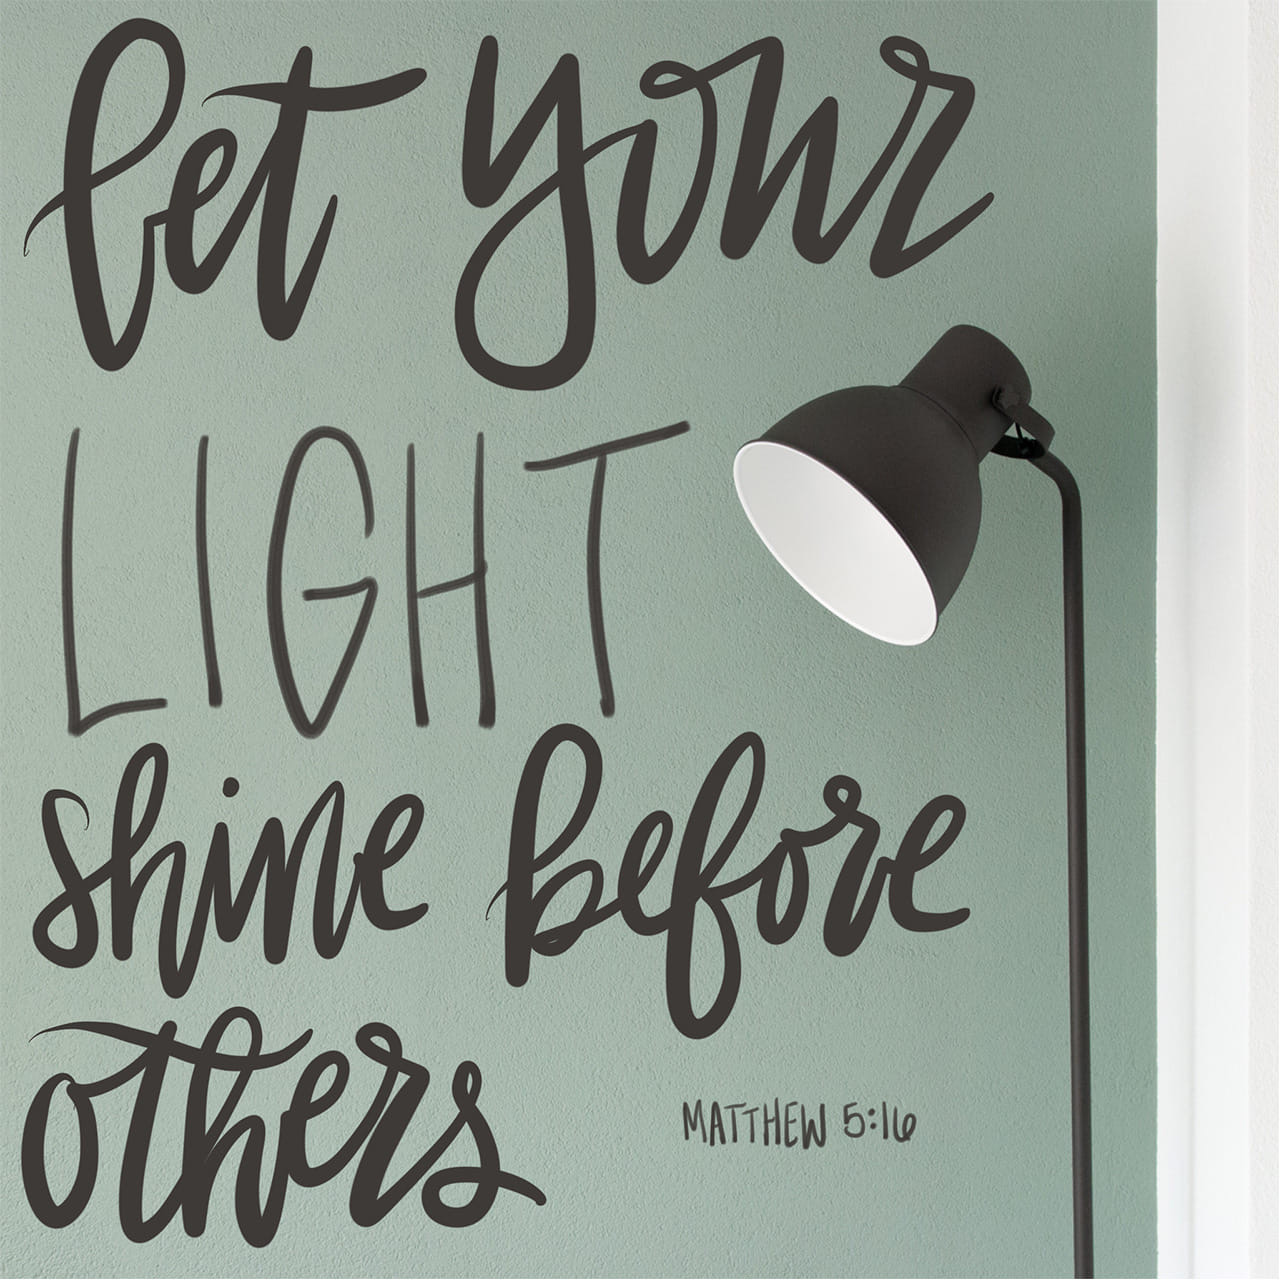 let your
LIGHT
shine before
others
MATTHEW 5:16